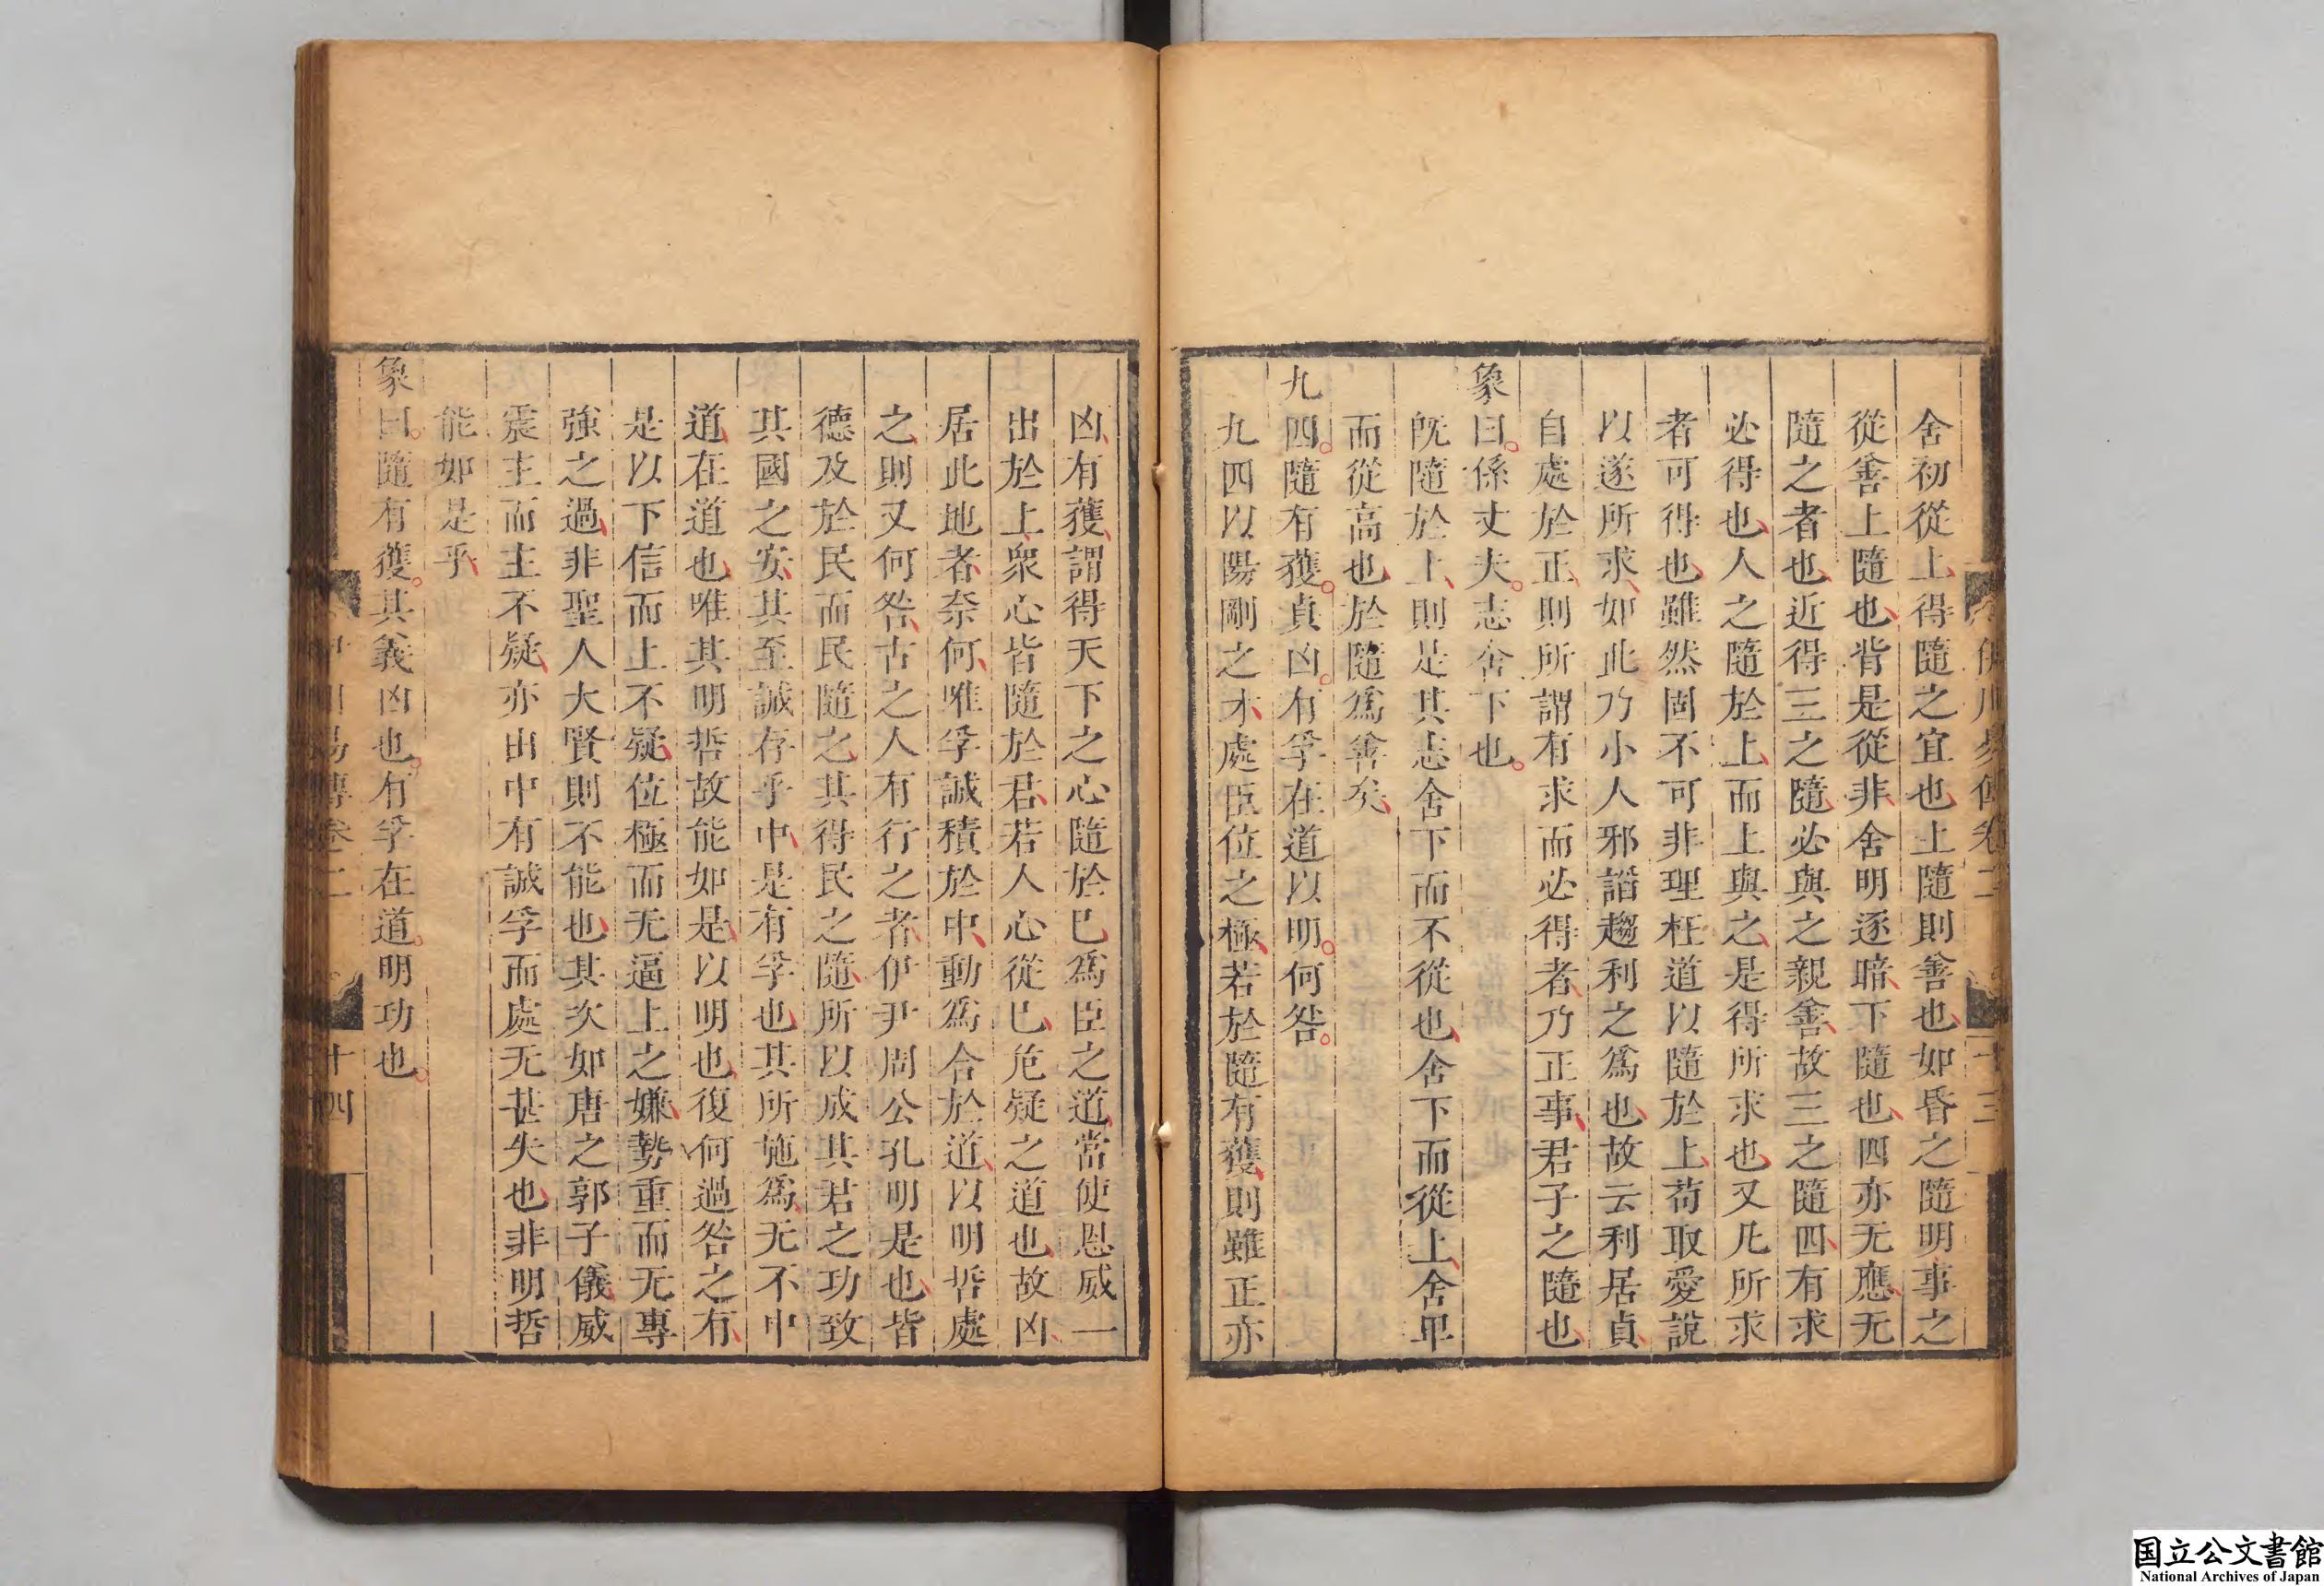 舍初從上得隨之宜也上隨則善也如昏之隨明事之
從善上隨也背是從非舍明逐暗下隨也四亦无應无
隨之者也近得三之隨必與之親善故三之隨四有求
必得也人之隨於上而上與之是得所求也又凡所求
者可得也雖然固不可非理枉道以隨於上苟取愛說
以遂所求如此乃小人邪諂趨利之爲也故云利居貞
自處於正則所謂有求而必得者乃正事君子之隨也
象曰係丈夫志舍下也
旣隨於上則是其志舍下而不從也舍下而從上舍卑
而從高也於隨爲善矣
九四隨有獲貞凶有孚在道以明何咎
九四以陽剛之才處臣位之極若於隨有獲則雖正亦
凶有獲謂得天下之心隨於已爲臣之道當使恩威一
出於上衆心皆隨於君若人心從已危疑之道也故凶
居此地者奈何唯孚誠積於中動爲合於道以明哲處
之則又何咎古之人有行之者伊尹周公孔明是也皆
德及於民而民隨之其得民之隨所以成其君之功致
其國之安其至誠存乎中是有孚也其所施爲无不中
道在道也唯其明哲故能如是以明也復何過咎之有
是以下信而上不疑位極而无逼上之嫌勢重而无專
強之過非聖人大賢則不能也其次如唐之郭子儀威
震主而主不疑亦由中有誠孚而處无甚失也非明哲
能如是乎
象曰隨有獲其義凶也有孚在道明功也
伊川易傳卷二 十四
国立公文書館
National Archives of Japan